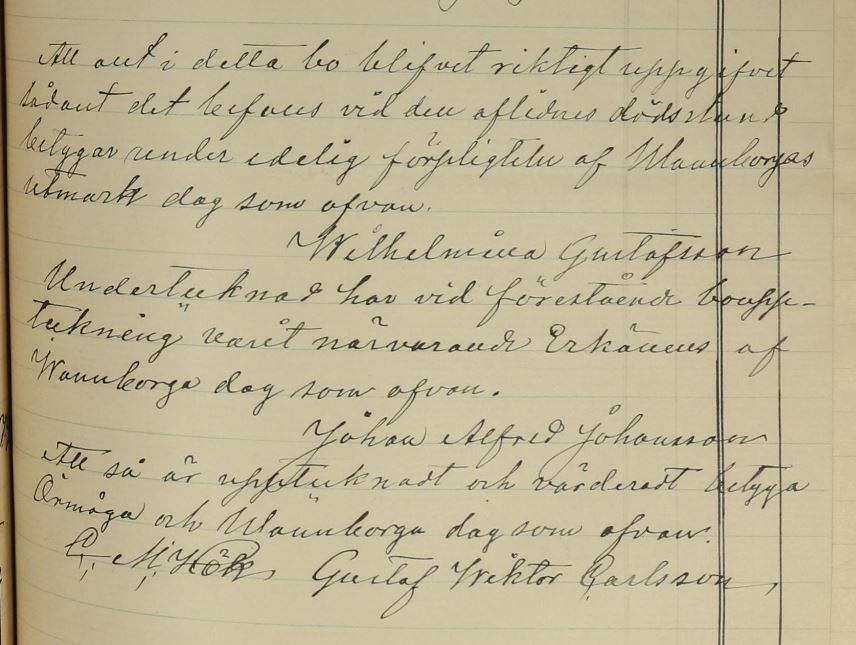 Att allt i detta bo blifvet riktigt uppgifvet
sådant det befans vid den aflidnes dödsstund
betygar under edelig förpligtelse af Wannborgas
utmark dag som ofvan.
Wilhelmina Gustafsson
Undertecknad har vid förestående boupp-
tekning varit närvarande Erkännes af
Wannborga dag som ofvan.
Johan Alfred Johansson
Att så är upptecknadt och värderadt betyga
Örmöga och Wannborga dag som ofvan.
C, M, Höök Gustaf Wiktor Carlsson